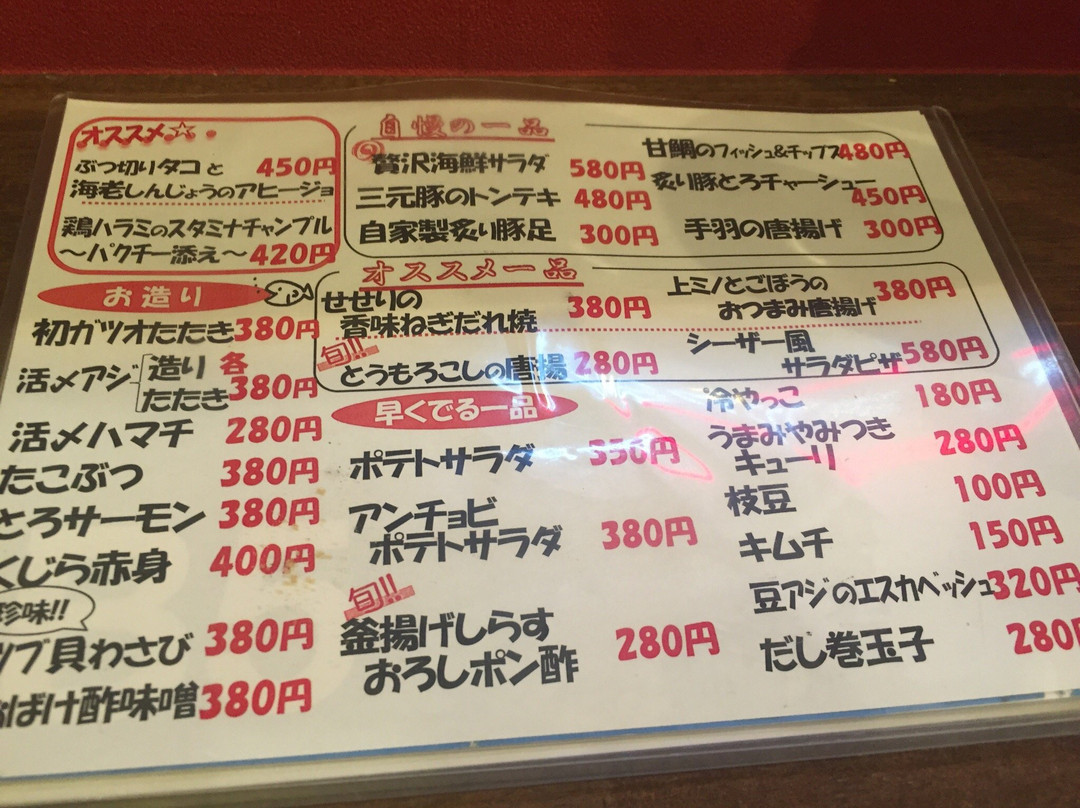 オススメ☆
ぶつ切りタコと 450円
海老しんじょうのアヒージョ
鶏ハラミのスタミナチャンプル
〜パクチー添え〜 420円
お造り
初ガツオたたき 380円
活〆アジ 造り 各
たたき 380円
活〆ハマチ 280円
たこぶつ 380円
とろサーモン 380円
くじら赤身 400円
珍味!!
ツブ貝わさび 380円
おばけ酢味噌 380円
自慢の一品
贅沢海鮮サラダ 580円
三元豚のトンテキ 480円
自家製炙り豚足 300円
甘鯛のフィッシュ&チップス 480円
炙り豚とろチャーシュー
450円
手羽の唐揚げ 300円
オススメ一品
せせりの
香味ねぎだれ焼 380円
旬!!
とうもろこしの唐揚 280円
上ミノとごぼうの
おつまみ唐揚げ 380円
シーザー風
サラダピザ 580円
早くでる一品
ポテトサラダ
アンチョビ
ポテトサラダ 380円
旬!!
釜揚げしらす
おろしポン酢 280円
冷やっこ 180円
うまみやみつき
キューリ 280円
枝豆 100円
キムチ 150円
豆アジのエスカベッシュ 320円
だし巻玉子 280円